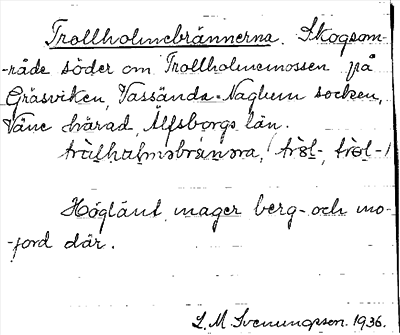 Trollholmebrännerna. Skogsom-
-råde söder om Trollholmemossen på
Gräsviken, Vassända-Naglum socken,
Väne härad, Älfsborgs län.
Höglänt mager berg- och mo-
-jord där.
L. M. Svenungsson. 1936.